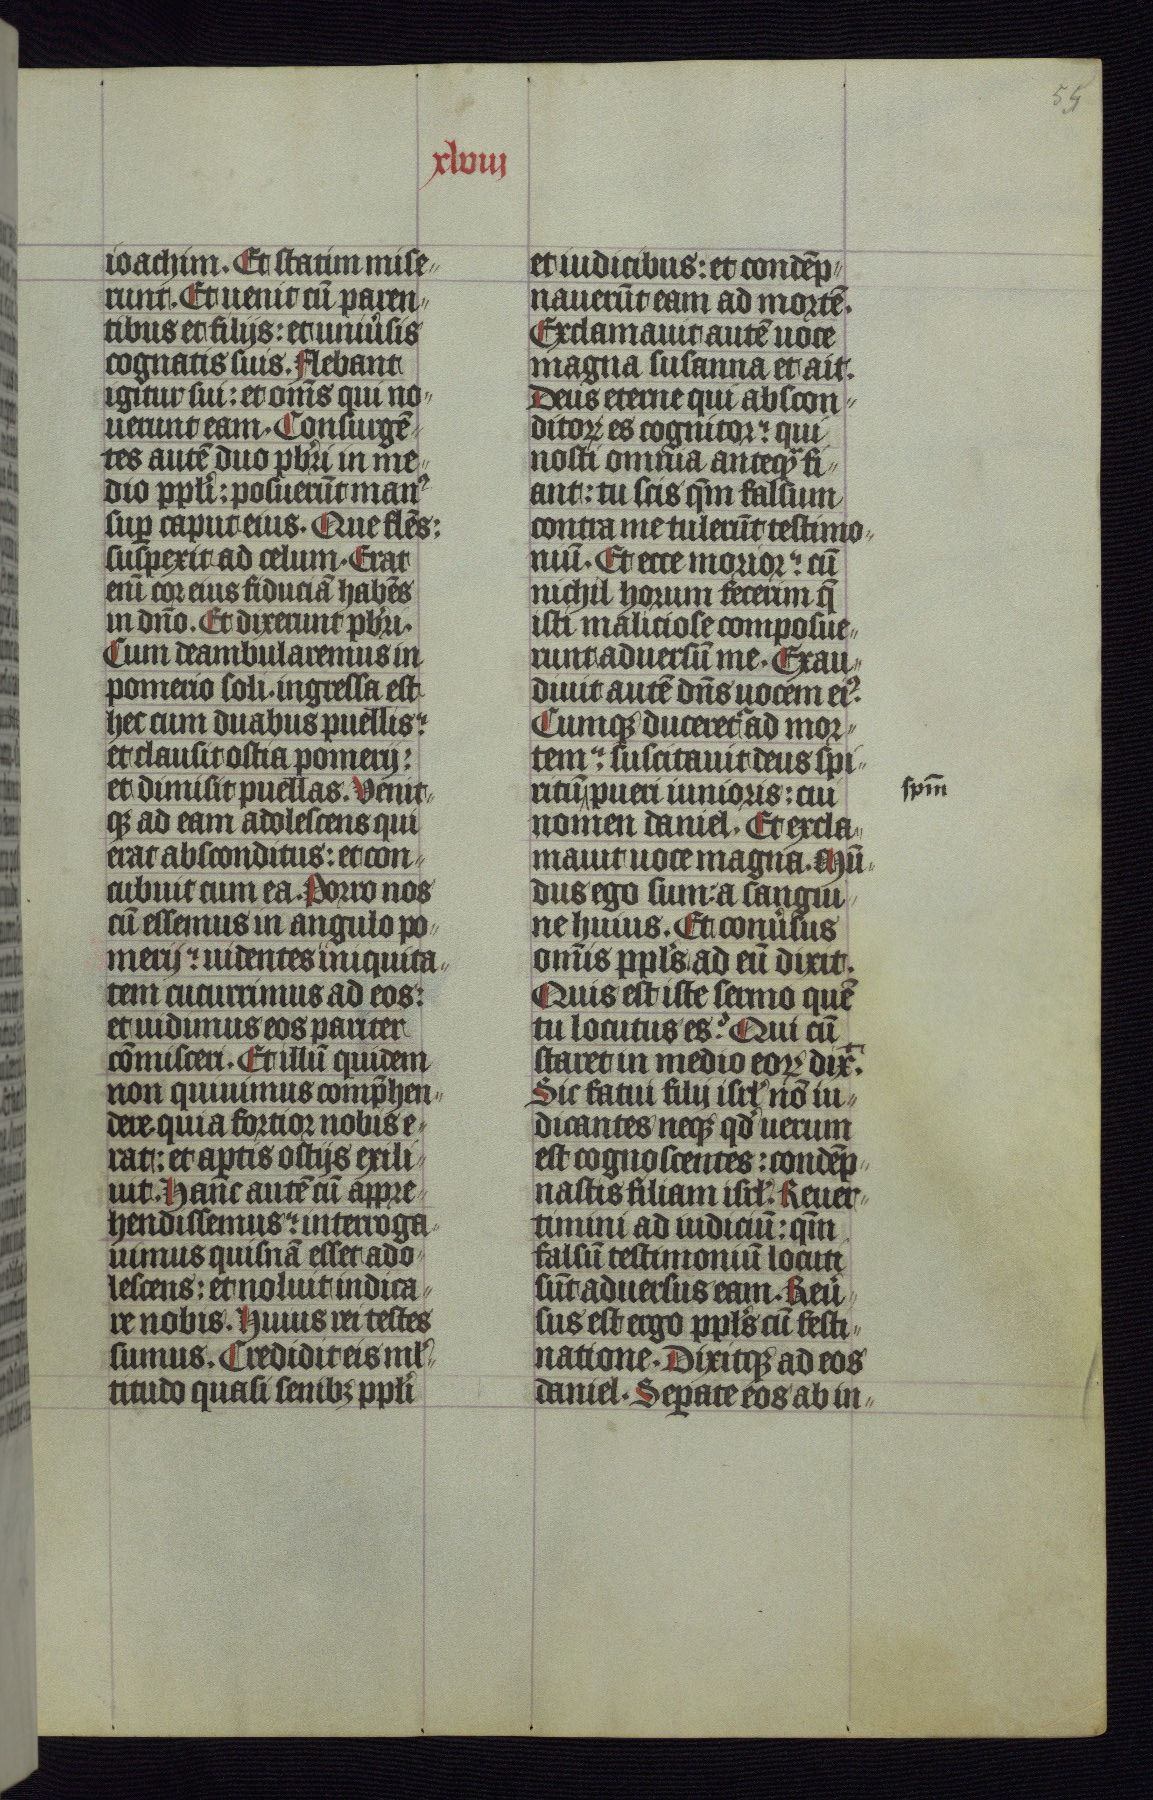 55
xlviii
ioachim. Et statim mise〃
runt. Et uenit cū paren〃
tibus et filijs: et uniu̾sis
cognatis suis. Flebant
igitur sui: et om̄s qui no〃
uerunt eam. Consurgē〃
tes autē duo pbr̄i in me〃
dio ppl̄i: posuerūt manꝰ
suꝑ caput eius. Que flēs:
suspexit ad celum. Erat
eni̅ cor eius fiduciā habēs
in dn̄o. Et dixerunt pbr̄i.
Cum deambularemus in
pomerio soli. ingressa est
hec cum duabus puellis:
et clausit ostia pomerij:
et dimisit puellas. Venit〃
qꝫ ad eam adolescens qui
erat absconditus: et con〃
cubuit cum ea. Porro nos
cū essemus in angulo po〃
merij: uidentes iniquita〃
tem cucurrimus ad eos:
et uidimus eos pariter
cōmisceri. Et illū quidem
non quiuimus comp̄hen〃
dere quia fortior nobis e〃
rat: et aptis ostijs exili〃
uit. Hanc autē cū appre〃
hendissemus: interroga〃
uimus quisnā esset ado〃
lescens: et noluit indica〃
re nobis. Huius rei testes
sumus. Credidit eis ml̾〃
titudo quasi senibꝫ ppl̄i
et iudicibus: et condēp〃
nauerūt eam ad mortē.
Exclamauit autē uoce
magna susanna et ait.
Deus eterne qui abscon〃
ditoꝝ es cognitor: qui
nosti omnia anteqᷓ fi〃
ant: tu scis qm̄ falsum
contra me tulerūt testimo〃
niū. Et ecce morior: cū
nichil horum fecerim q̄
isti maliciose composue〃
runt aduersū me. Exau〃
diuit autē dn̄s uocem eiꝰ.
Cumqꝫ duceret᷑ ad mor〃
tem: suscitauit deus spi〃
ritū pueri iunioris: cui
spm̄
nomen daniel. Et excla〃
mauit uoce magna. Mū〃
dus ego sum: a sangui〃
ne huius. Et conu̾sus
om̄is ppl̄s ad eū dixit.
Quis est iste sermo quē
tu locutus es? Qui cū
staret in medio eoꝝ dix̄.
Sic fatui filij isrl̾ nō iu〃
dicantes neqꝫ qd̾ uerum
est cognoscentes: condēp〃
nastis filiam isrl̾. Reuer〃
timini ad iudiciū: qm̄
falsū testimoniū locuti
sūt aduersus eam. Reu̾〃
sus est ergo ppl̄s cū festi〃
natione. Dixitqꝫ ad eos
daniel. Seꝑate eos ab in〃